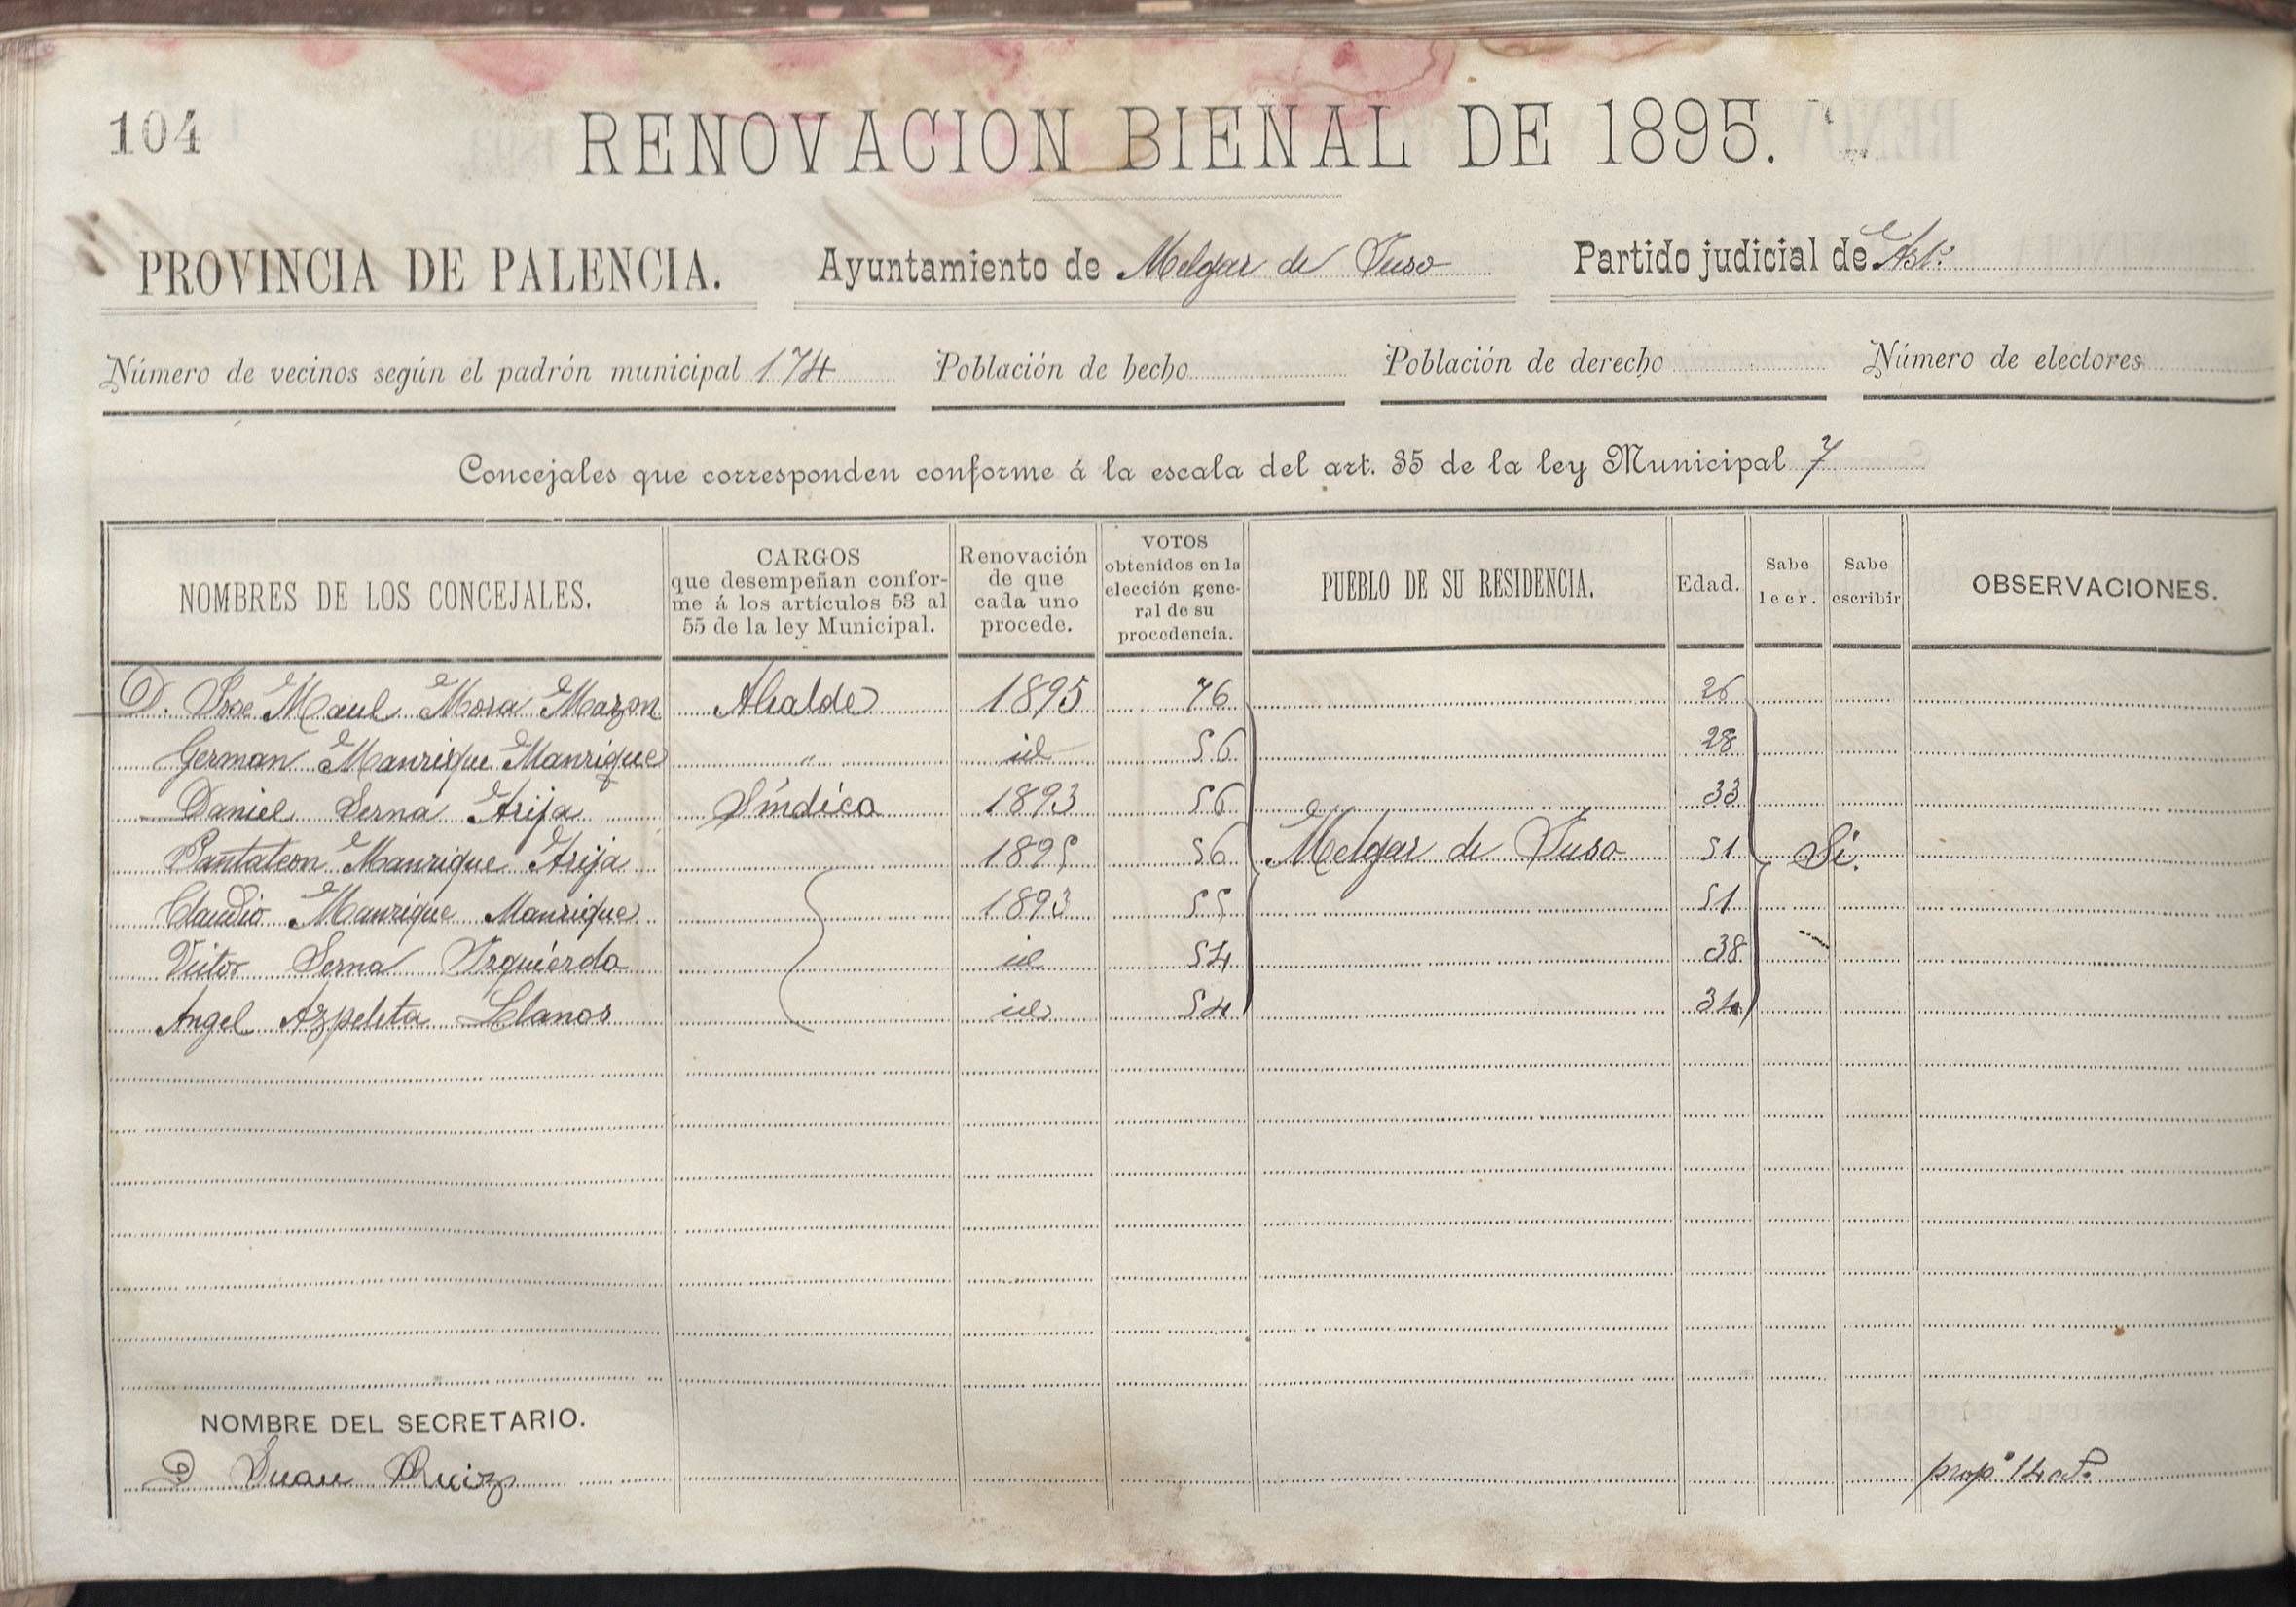 104
RENOVACION BIENAL DE 1895.
PROVINCIA DE PALENCIA. Ayuntamiento de Melgar de Yuso Partido judicial de Ast.
Número de vecinos según el padrón municipal 174 Población de hecho Población de derecho Número de electores
Concejales que corresponden conforme á la escala del art. 35 de la ley Municipal 7
NOMBRES DE LOS CONCEJALES. CARGOS que desempeñan conforme á los artículos 53 al 55 de la ley Municipal. Renovación de que cada uno procede. VOTOS obtenidos en la elección general de su procedencia. PUEBLO DE SU RESIDENCIA. Edad. Sabe leer. Sabe escribir OBSERVACIONES.
D. Jose Mora Mazon Alcalde 1895 76 26
German Manrique Manrique " id 56 28
Daniel Serna Arija Síndico 1893 56 33
Pantaleon Manrique Arija 1895 56 Melgar de Yuso 51 Si.
Claudio Manrique Manrique 1893 55 51
Victor Serna Izquierdo id 54 38
Angel Azpeleta Llanos id 54 34
NOMBRE DEL SECRETARIO.
D Juan Ruiz prop.º